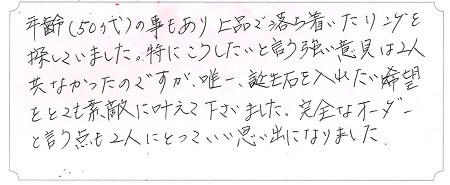 年齢(50代)の事もあり上品で落ち着いたリングを
探していました。特にこうしたいと言う強い意見は2人
共なかったのですが、唯一、誕生石を入れたい希望
をとても素敵に叶えて下さいました。完全なオーダー
と言う点も2人にとっていい思い出になりました。